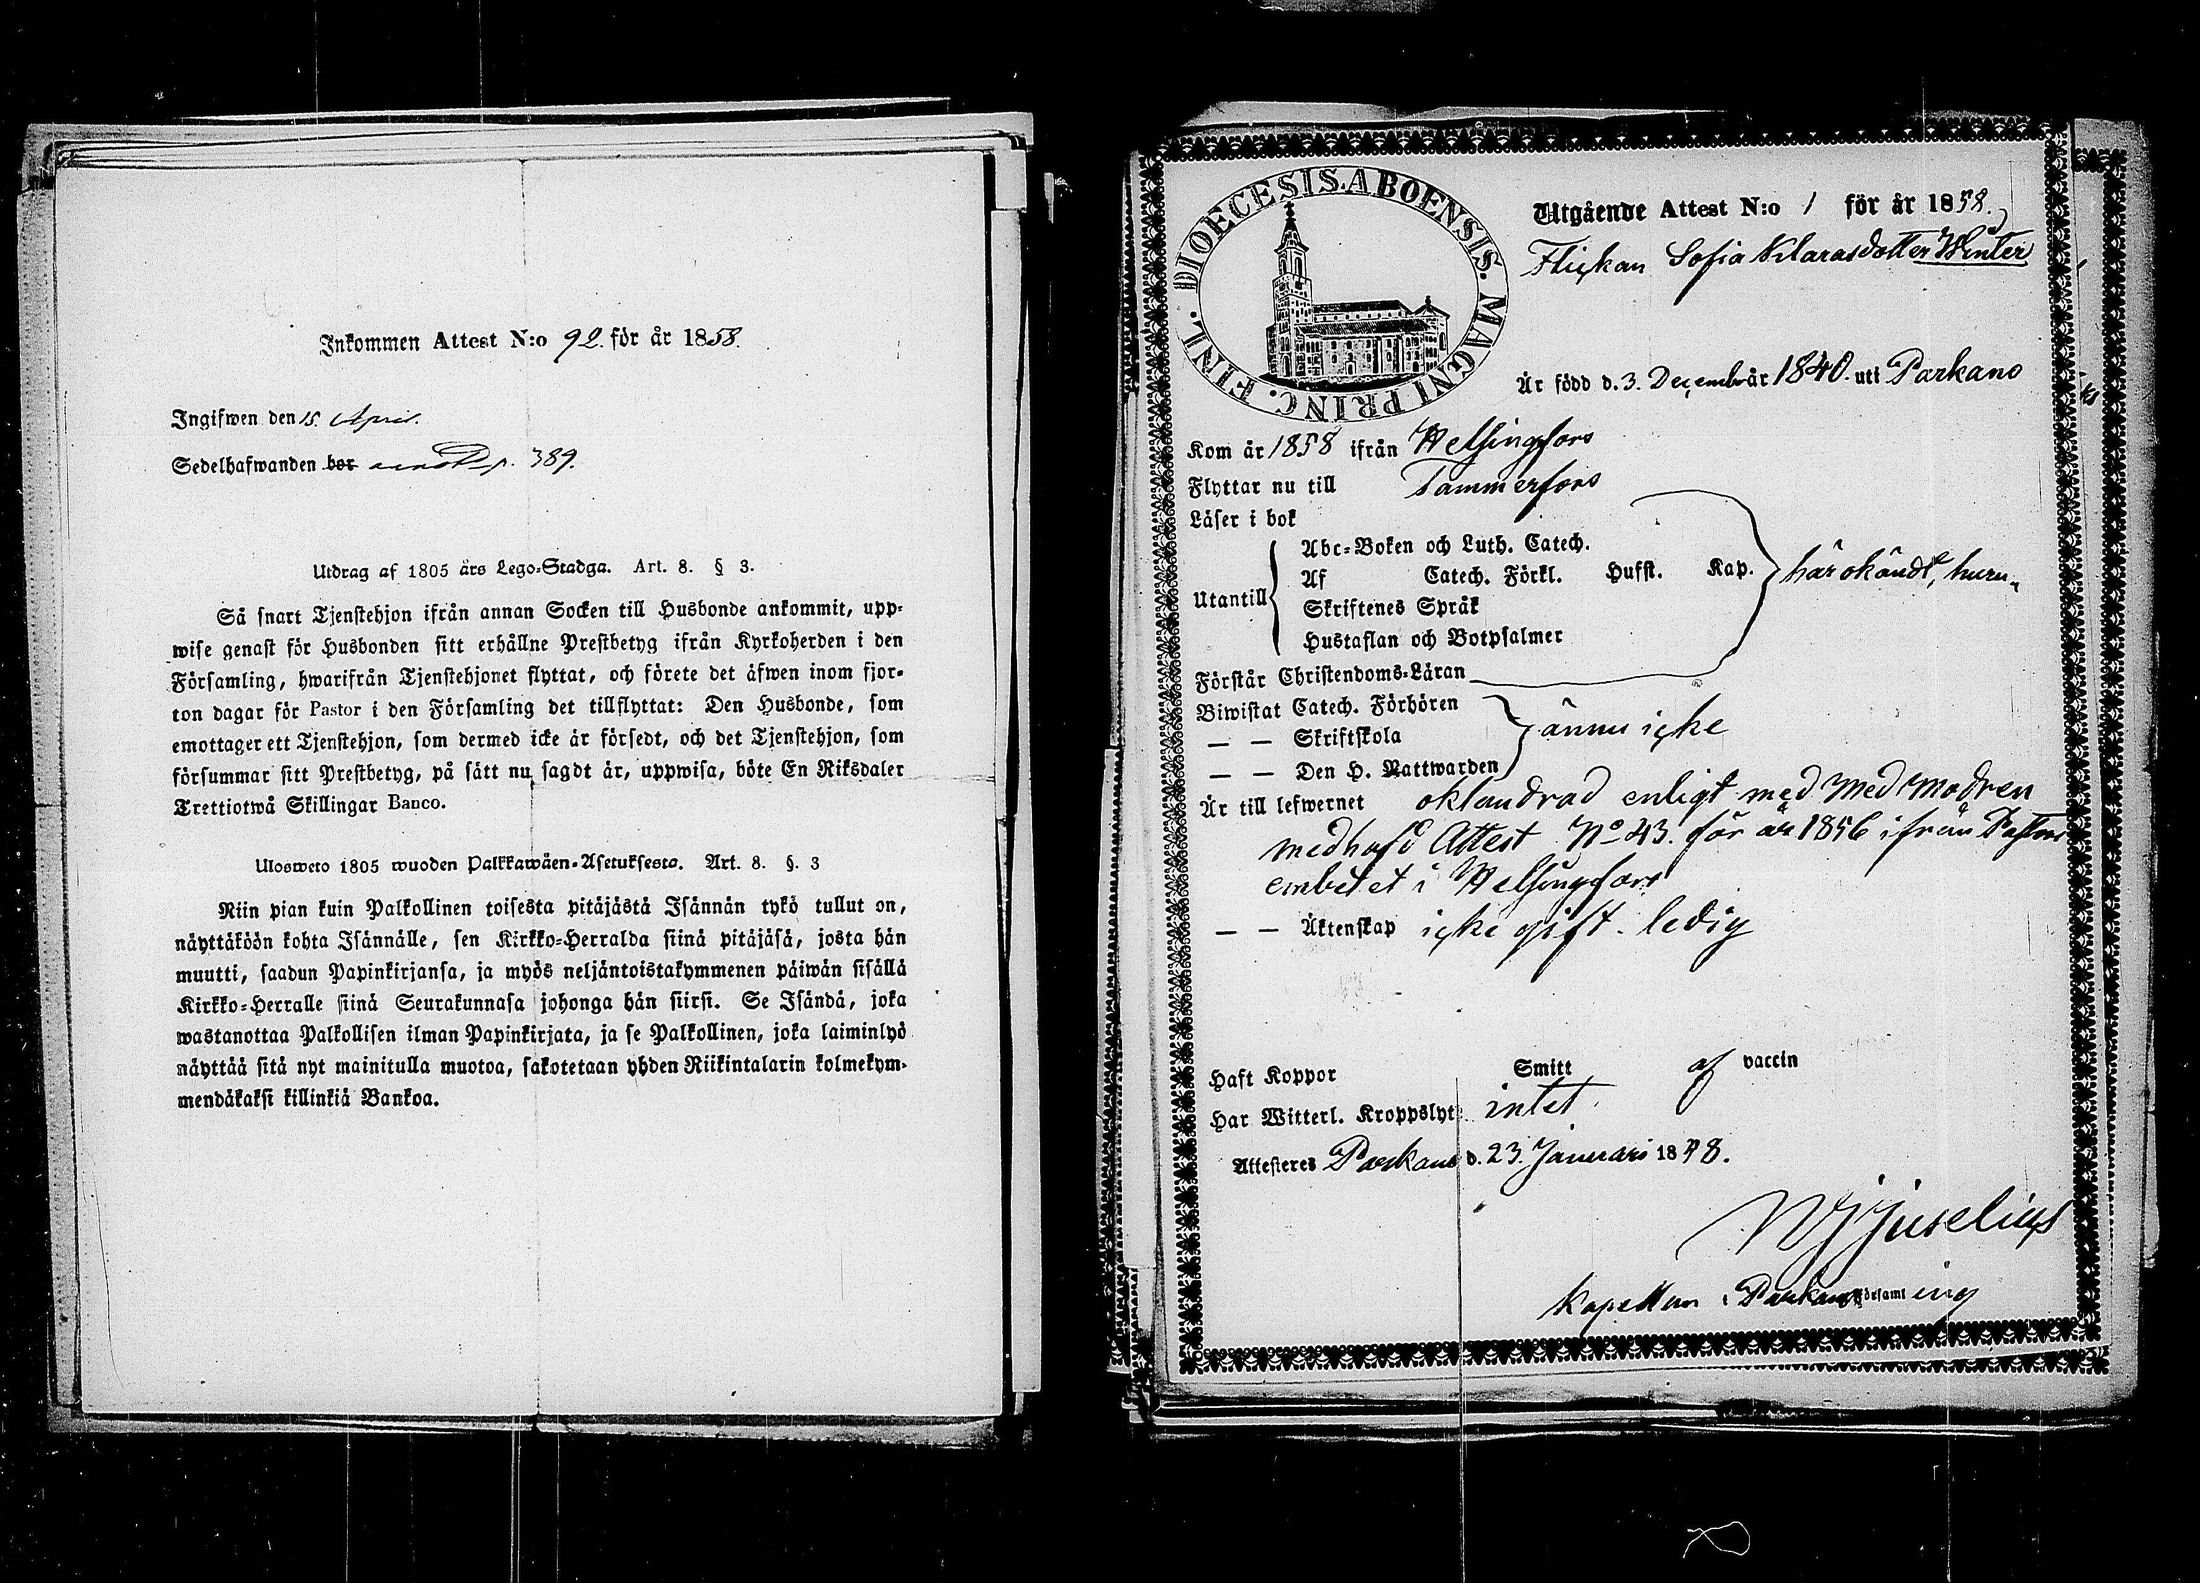 Inkommen Attest N:o 92. för år 1858.
Ingifwen den 15. April.
Sedelhafwanden bor annot. p. 389.
Utdrag af 1805 års Lego-Stadga. Art. 8. § 3.
Så snart Tjenstehjon ifrån annan Socken till Husbonde ankommit, upp-
wise genast för Husbonden sitt erhållne Prestbetyg ifrån Kyrkoherden i den
Församling, hwarifrån Tjenstehjonet flyttat, och förete det äfwen inom fjor-
ton dagar för Pastor i den Församling det tillflyttat: Den Husbonde, som
emottager ett Tjenstehjon, som dermed icke är försedt, och det Tjenstehjon, som
försummar sitt Prestbetyg, på sätt nu sagdt är, uppwisa, böte En Riksdaler
Trettiotwå Skillingar Banco.
Ulosweto 1805 wuoden Palkkawäen-Asetuksesta. Art. 8. §. 3
Niin pian kuin Palkollinen toisesta pitäjästä Isännän tykö tullut on,
näyttäköön kohta Isännälle, sen Kirkko-Herralda siinä pitäjäsä, josta hän
muutti, saadun Papinkirjansa, ja myös neljäntoistakymmenen päiwän sisällä
Kirkko-Herralle siinä Seurakunnasa johonga hän siirsi. Se Isändä, joka
wastanottaa Palkollisen ilman Papinkirjata, ja se Palkollinen, joka laiminlyö
näyttää sitä nyt mainitulla muotoa, sakotetaan yhden Riikintalarin kolmekym-
mendäkaksi killinkiä Bankoa.
DIOECESIS. ABOENSIS. MAGNI PRINC. FINL.
Utgående Attest N:o 1 för år 1858.
Flickan Sofia Klarasdotter Winter
Är född d. 3. December år 1840. uti Parkano
Kom år 1858 ifrån Helsingfors
Flyttar nu till Tammerfors
Läser i bok
Abc-Boken och Luth. Catech.
Utantill Af Catech. Förkl. Husst. Kap. här okändt, huru
Skriftenes Språk
Hustaflan och Botpsalmer
Förstår Christendoms-Läran
Biwistat Catech. Förhören
— — Skriftskola ännu icke
— — Den H. Nattwarden
Är till lefwernet oklandrad enligt med Modren
medhafd Attest No 43. för år 1856 ifrån Pastors
embetet i Helsingfors
— — Äktenskap icke gift. ledig
Haft Koppor Smitt af vaccin
Har Witterl. Kroppslyt intet.
Attesteres Parkano d. 23. Januari 1858.
Juselius
Kapellan i Parkano församling